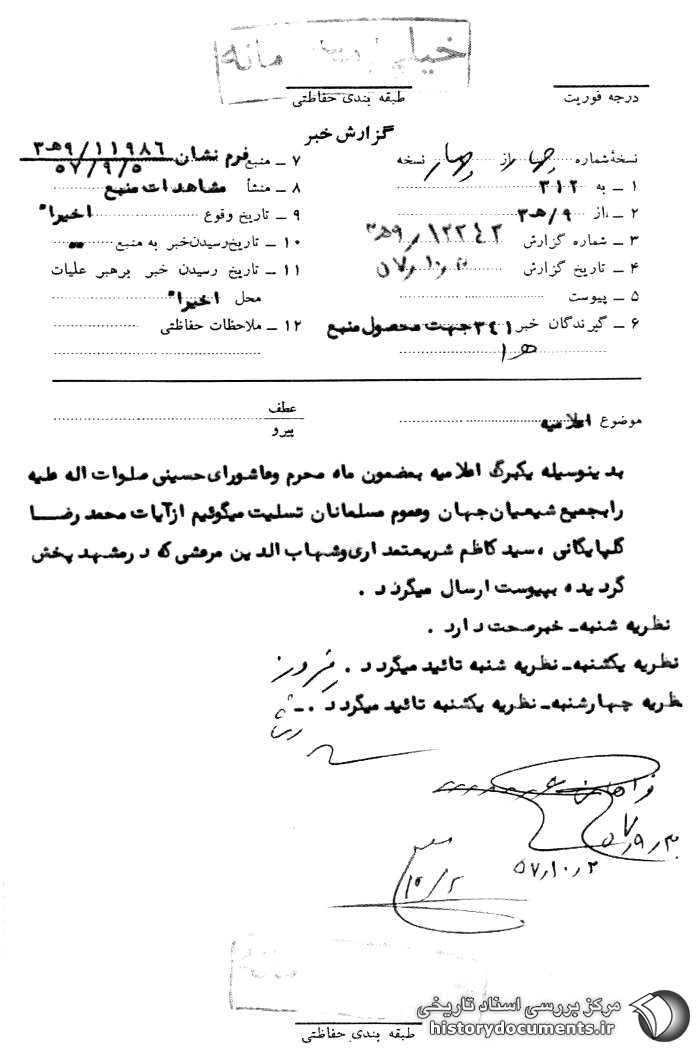 خیلی مانه
طبقه بندی حفاظتی
درجه فوریت
گزارش خبر
نسخهٔ شماره چهار از چهار نسخه
۱ ـ به ۳۱۲
۲ ـ از ۹/ هـ ۳
۳ ـ شماره گزارش
۴ ـ تاریخ گزارش
۵ ـ پیوست
۶ ـ گیرندگان خبر ۳۴۱ جهت محصول منبع
هـ ۱
۷ ـ منبع فرم نشان ۱۱۹۸۶/ ۹ هـ ۳
۵۷/۹/۵
۸ ـ منشأ مشاهدات منبع
۹ ـ تاریخ وقوع اخیرا"
۱۰ ـ تاریخ رسیدن خبر به منبع ــ
۱۱ ـ تاریخ رسیدن خبر برهبر عملیات
محل اخیرا"
۱۲ ـ ملاحظات حفاظتی
موضوع اعلامیه
عطف
پیرو
بدینوسیله یکبرگ اعلامیه بمضمون ماه محرم وعاشورای حسینی صلوات اله علیه
رابجمیع شیعیان جهان وعموم مسلمانان تسلیت میگوئیم ازآیات محمد رضا
گلپایگانی ، سید کاظم شریعتمداری وشهاب الدین مرعشی که درمشهد پخش
گردیده بپیوست ارسال میگردد .
نظریه شنبه ـ خبرصحت دارد .
نظریه یکشنبه ـ نظریه شنبه تائید میگردد .
نظریه چهارشنبه ـ نظریه یکشنبه تائید میگردد .
۵۷٫۱۰٫۲
۱۰/۲
مرکز بررسی اسناد تاریخی
historydocuments.ir
طبقه بندی حفاظتی